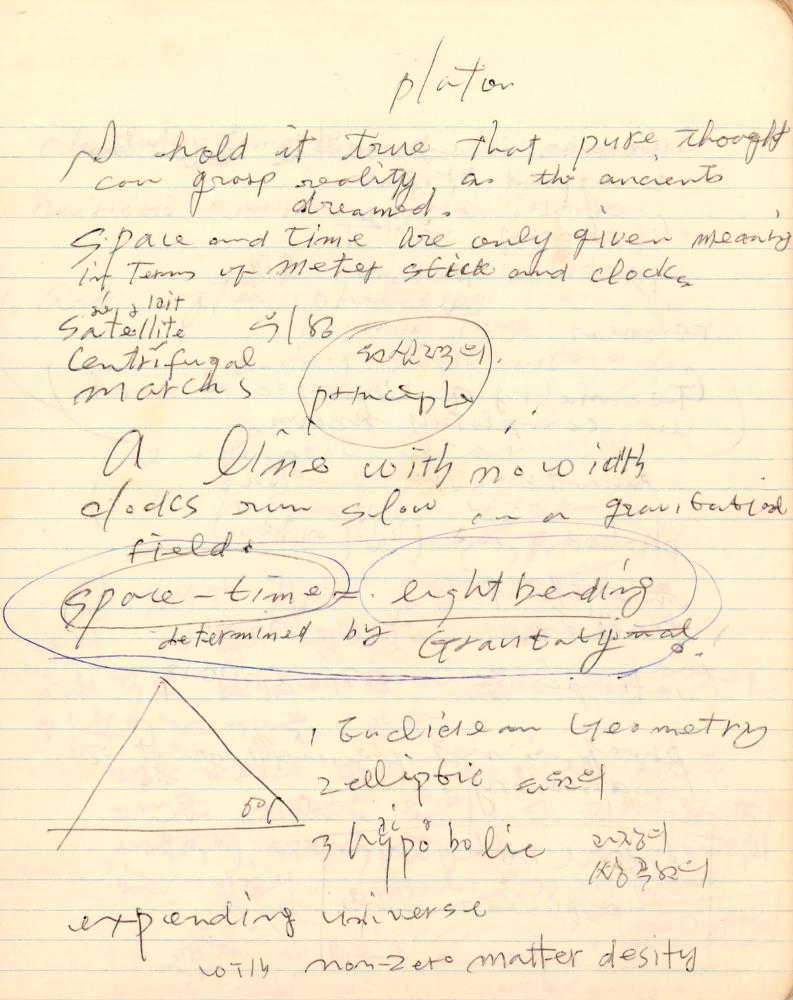 platon
I hold it true that pure thought
can grasp reality, as the ancients
dreamed.
Space and time are only given meaning
in Terms of meter stick and clocks
Satellite 위성
Centrifugal
principle
A line with no width
clocks run slow in a gravitational
field.
space-time = light bending
determined by Gravitational
1 Euclidean Geometry
60°
2 elliptic 타원의
3 hypobolic 과장의
쌍곡선의
expanding universe
with non-zero matter desity